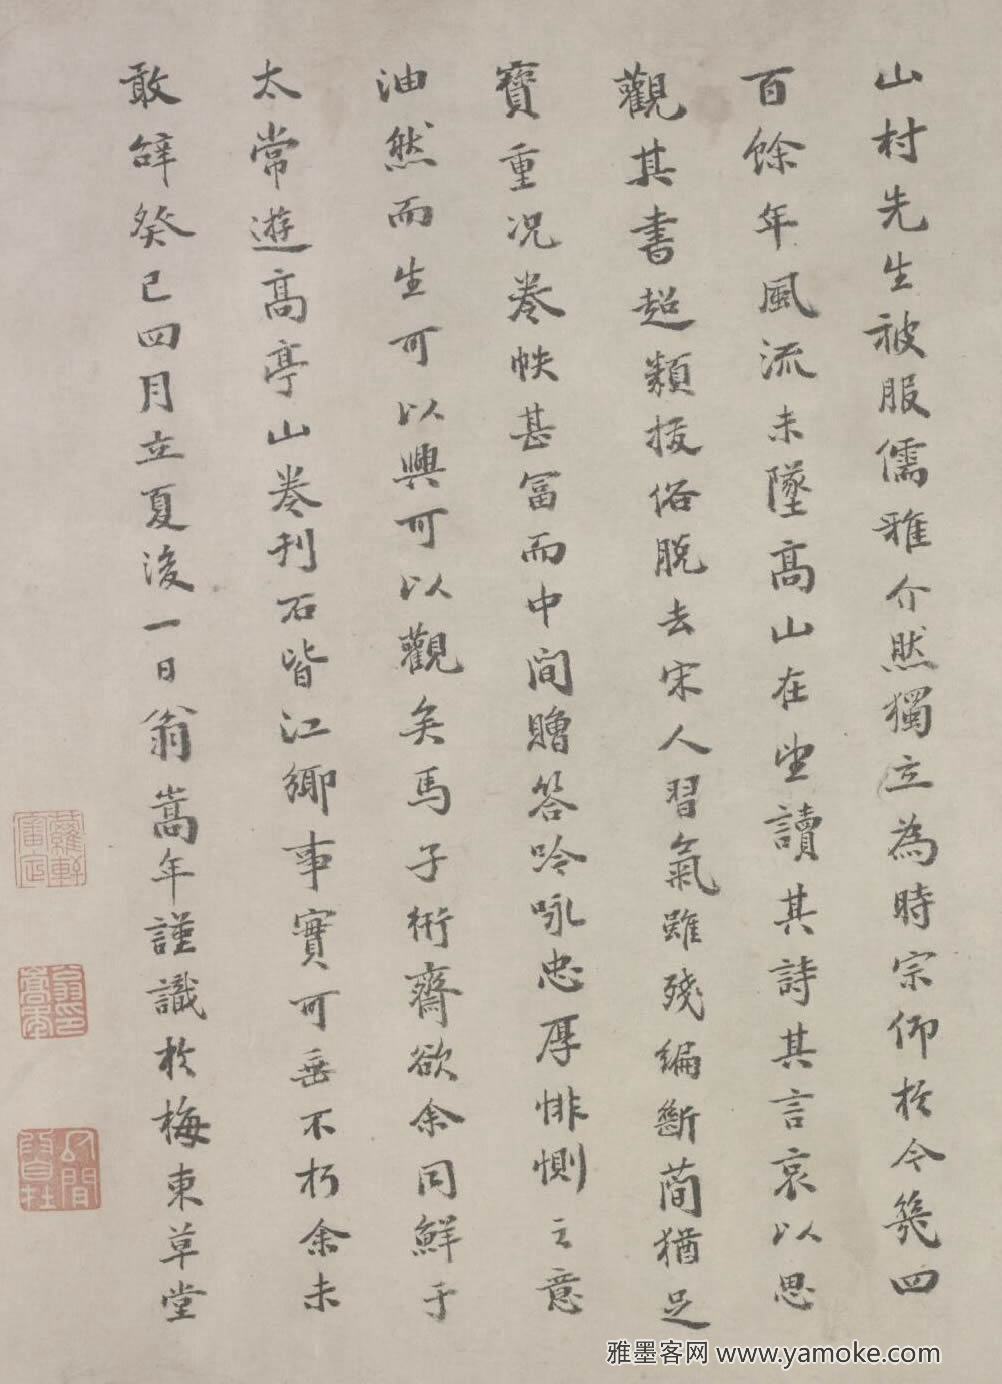 山村先生被服儒雅介然獨立為時宗仰於今幾四
百餘年風流未墜高山在望讀其詩其言哀以思
觀其書超類拔俗脫去宋人習氣雖殘編斷蕳猶足
寶重況卷帙甚富而中間贈答吟咏忠厚悱惻之意
油然而生可以興可以觀矣馬子衎齋欲余同鮮于
太常遊高亭山卷刊石皆江鄉事實可垂不朽余未
敢辞癸巳四月立夏後一日翁嵩年謹識於梅東草堂
翁印嵩年
雅墨客网 www.yamoke.com